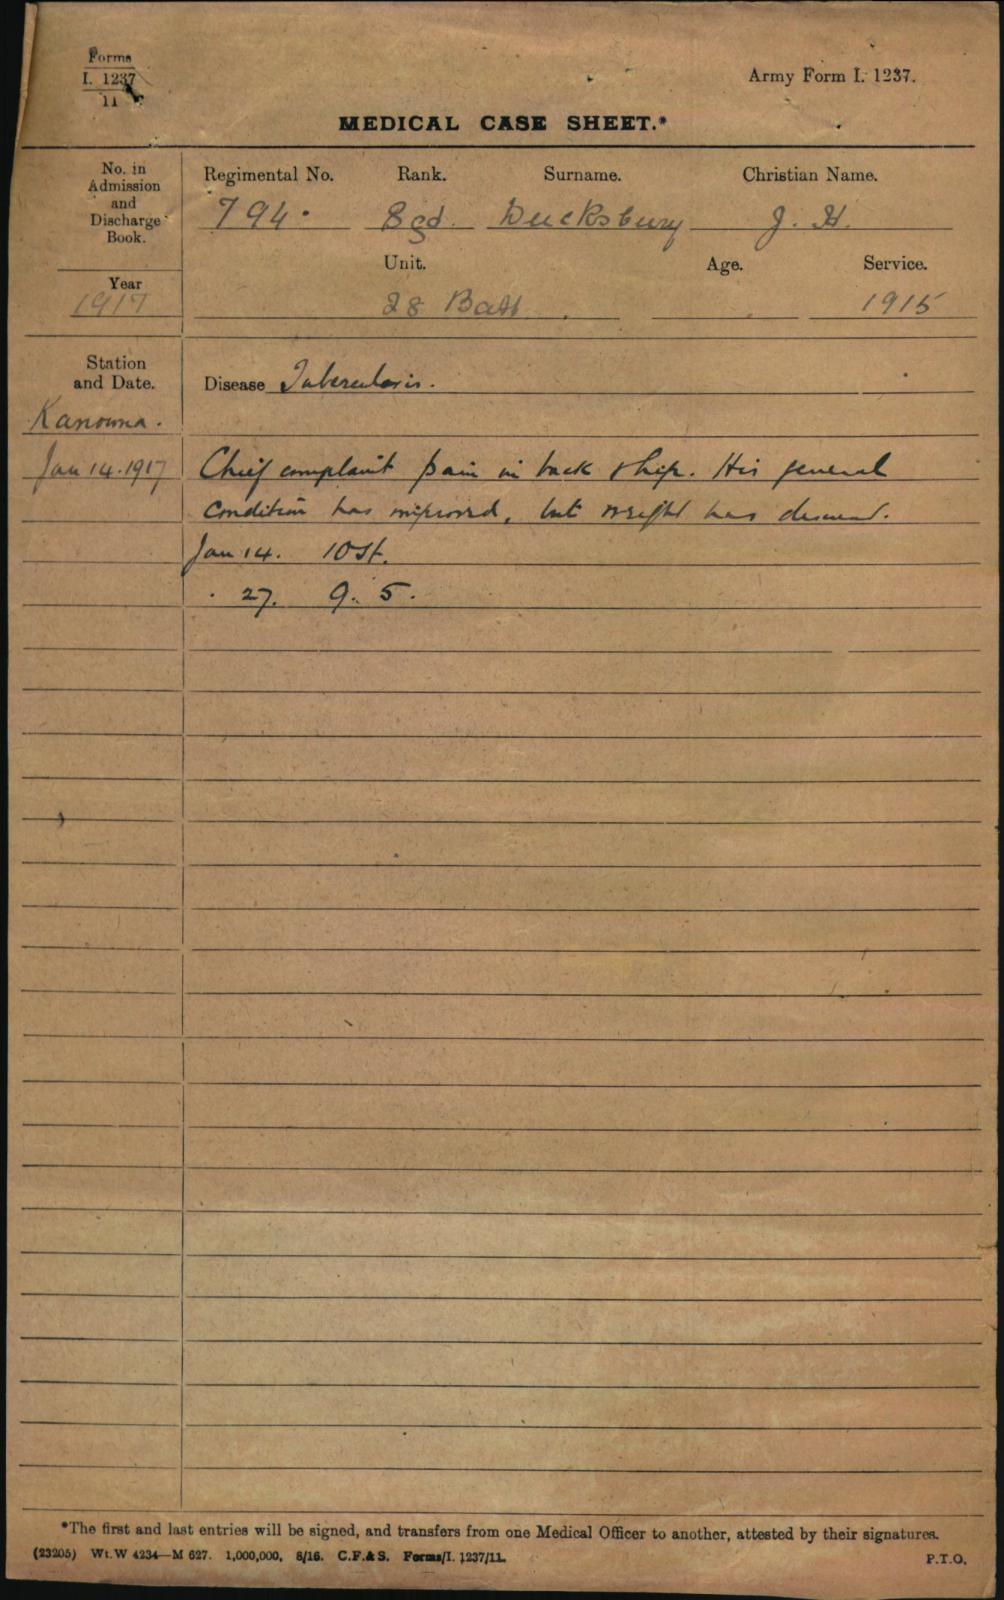 Forms
I. 1237
11
Army Form I. 1237.
MEDICAL CASE SHEET.*
No. in Admission and Discharge Book.
Regimental No. Rank. Surname. Christian Name.
794. Sgd. Ducksbury J. H.
Unit. Age. Service.
Year
1917
28 Batt. 1915
Station and Date.
Disease Tuberculosis.
Kanowna.
Jan 14. 1917 Chief complaint pain in back & hip. His general
condition has improved, but weight has decreased.
Jan 14. 10 St.
. 27. 9. 5.
*The first and last entries will be signed, and transfers from one Medical Officer to another, attested by their signatures.
(23205) Wt. W 4234—M 627. 1,000,000. 8/16. C.F.&S. Forms/I. 1237/11.
P.T.O.